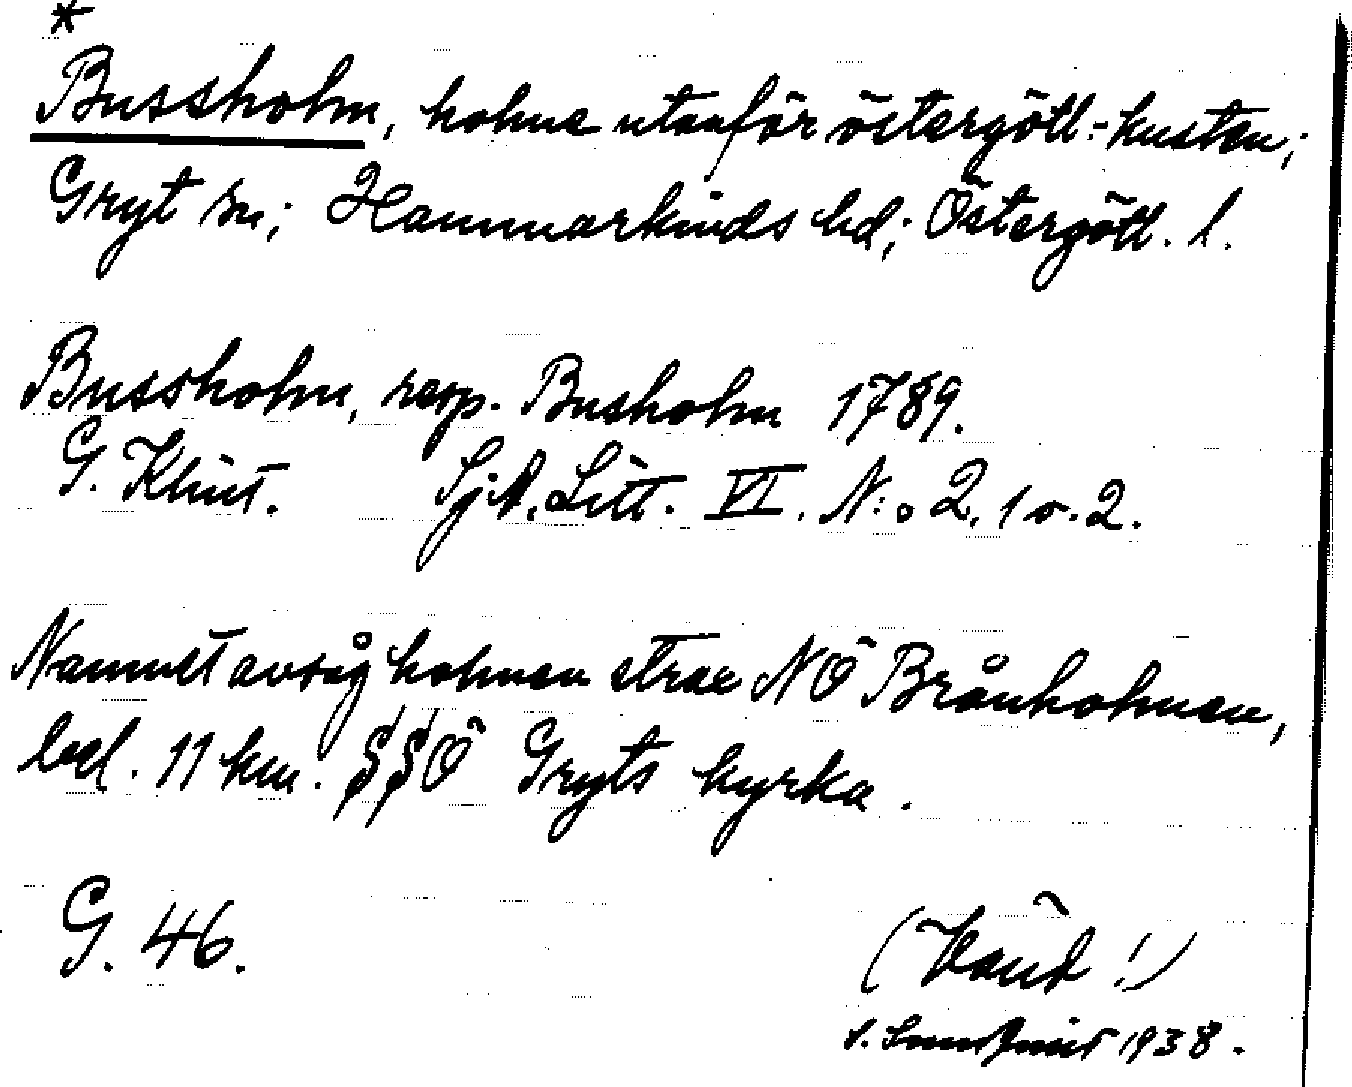 *
Bussholm, holme utanför östergötl.-kusten;
Gryt sn; Hammarkinds hd; Östergötl. l.
Bussholm, resp. Busholm 1789.
G. Klint. Sj.A. Litt. VI. N:o 2. 1 o. 2.
Namnet avsåg holmen strax NÖ Brånholmen,
bel. 11 km. SSÖ Gryts kyrka.
G. 46.
(Vänd!)
1938.